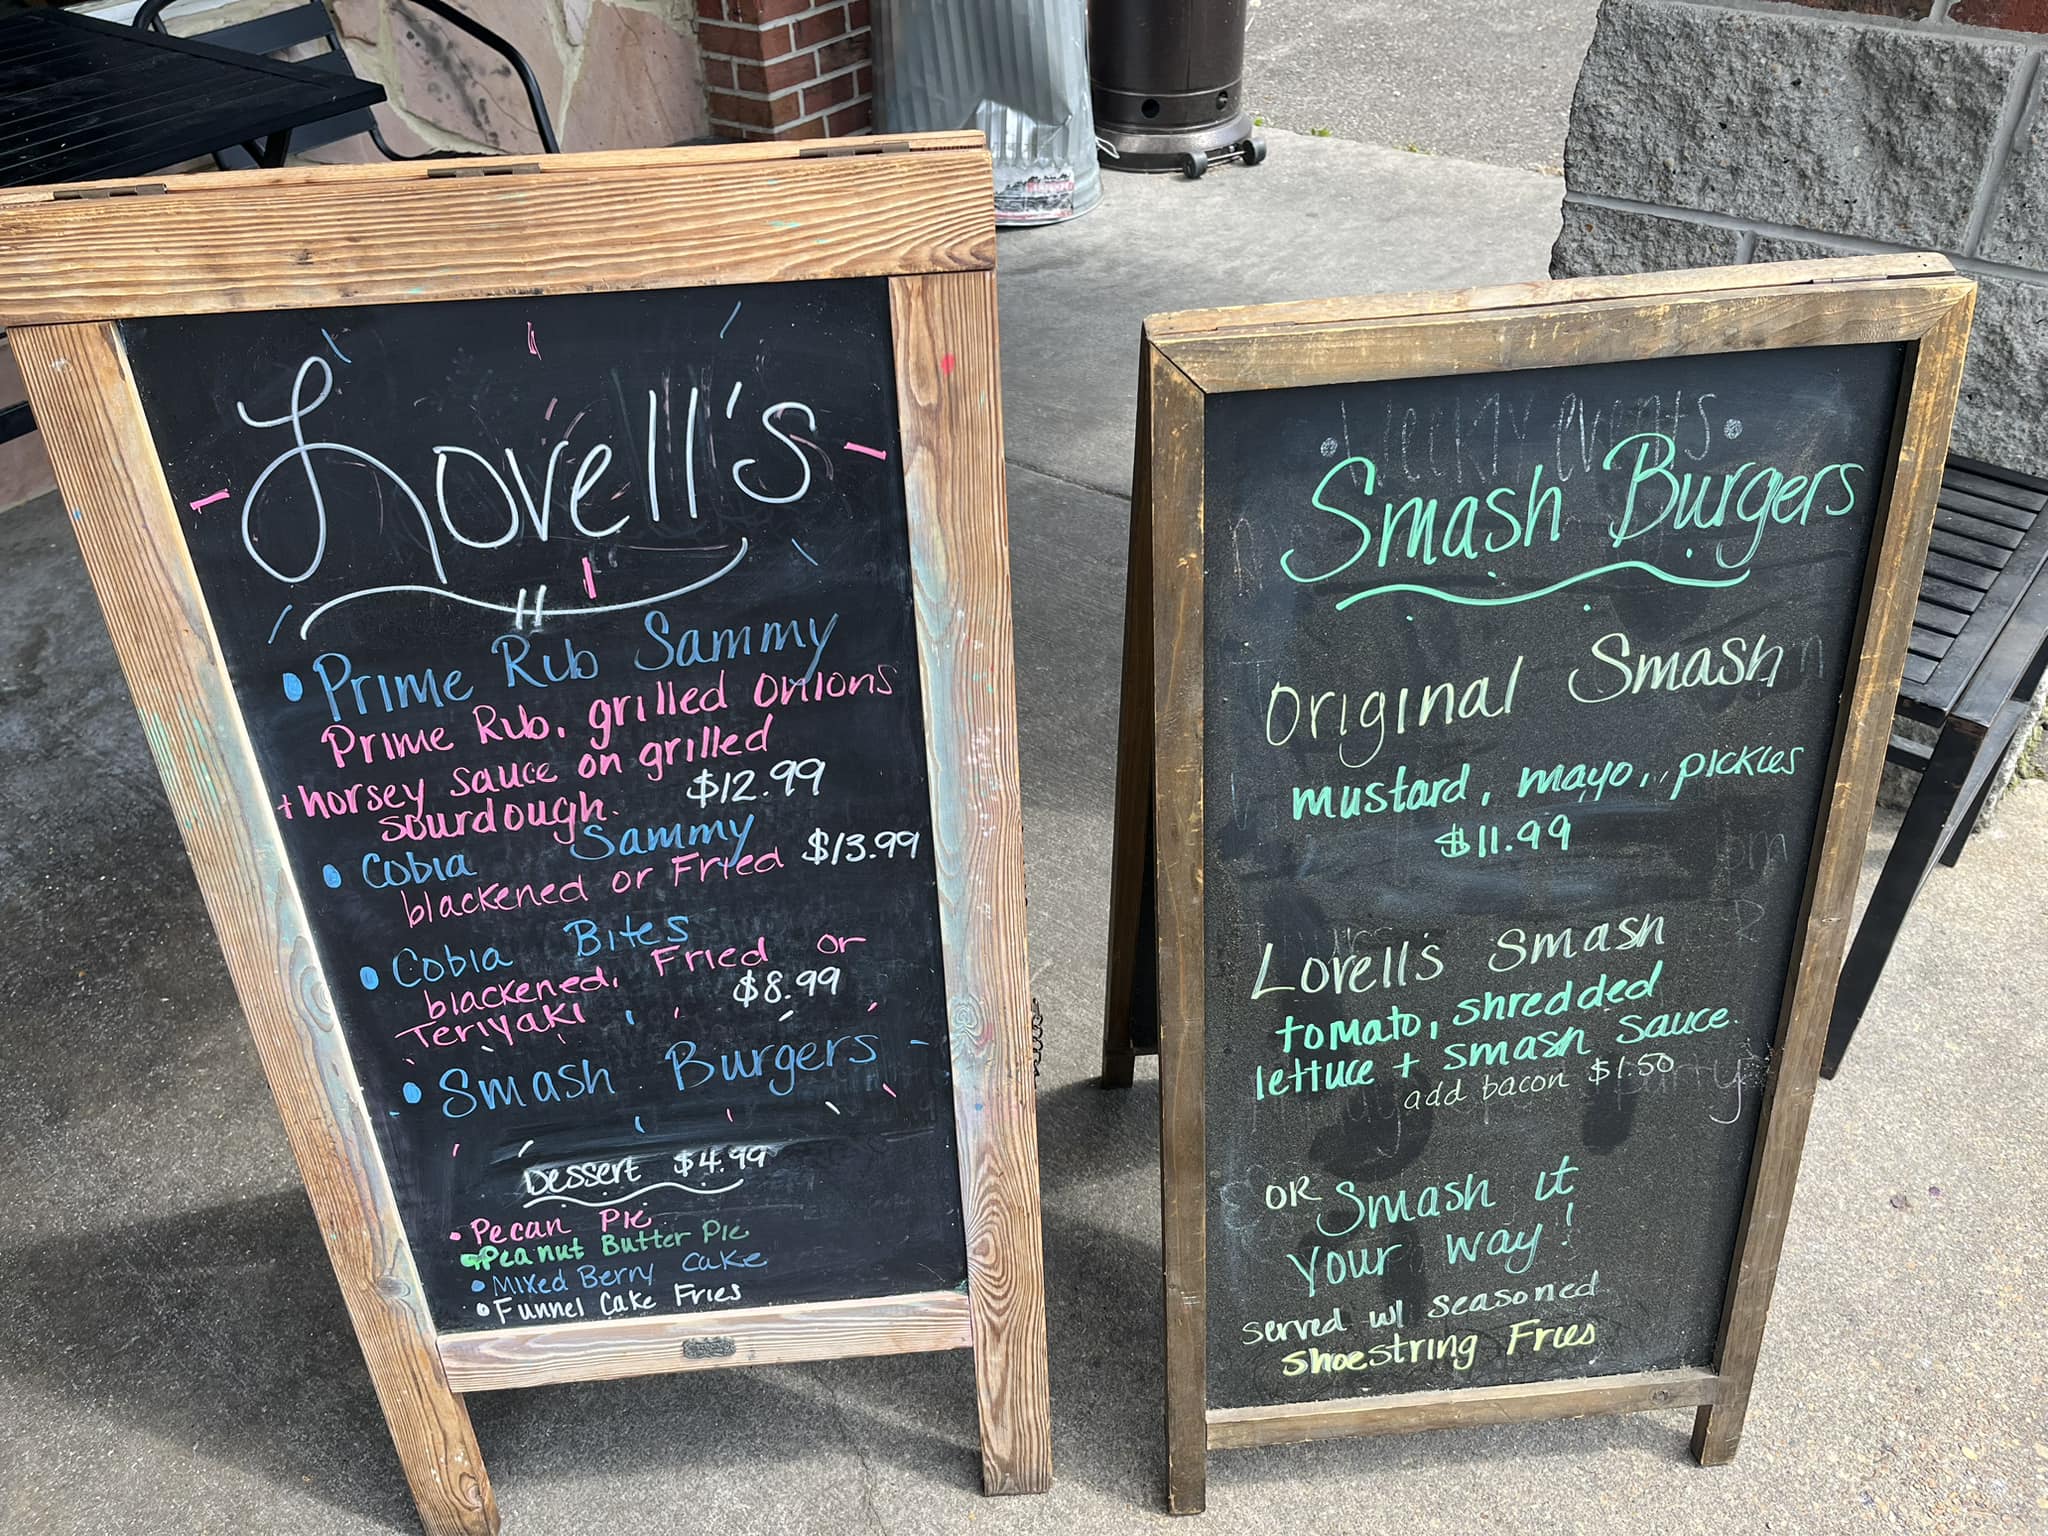 Lovell's
• Prime Rib Sammy
Prime Rib, grilled onions
+ horsey sauce on grilled
sourdough. $12.99
• Cobia Sammy
blackened or Fried $13.99
• Cobia Bites
blackened, Fried or
Teriyaki $8.99
• Smash Burgers
Dessert $4.99
• Pecan Pie
• Peanut Butter Pie
• Mixed Berry Cake
• Funnel Cake Fries
• Weekly events •
Smash Burgers
Original Smash
mustard, mayo, pickles
$11.99
Lovell's Smash
tomato, shredded
lettuce + smash sauce.
add bacon $1.50
OR Smash it
your way!
served w/ seasoned
shoestring Fries